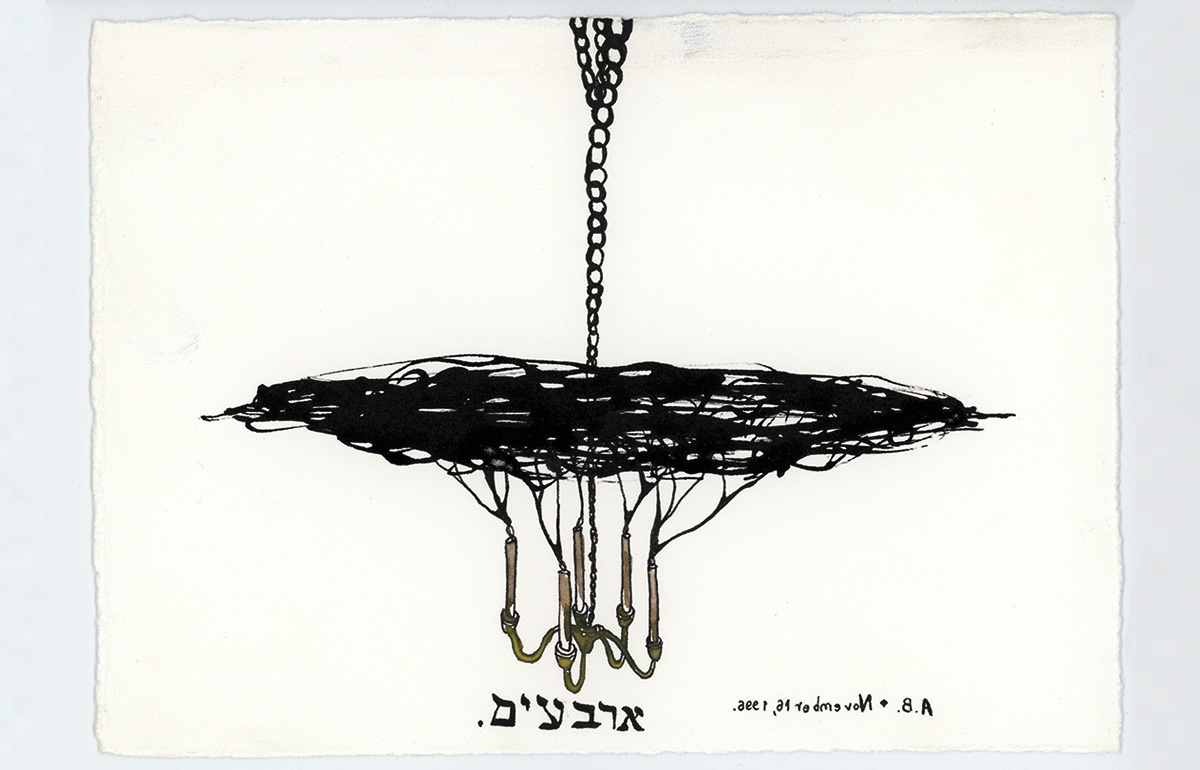 ארבעים.
A.B. • November 16, 1996.